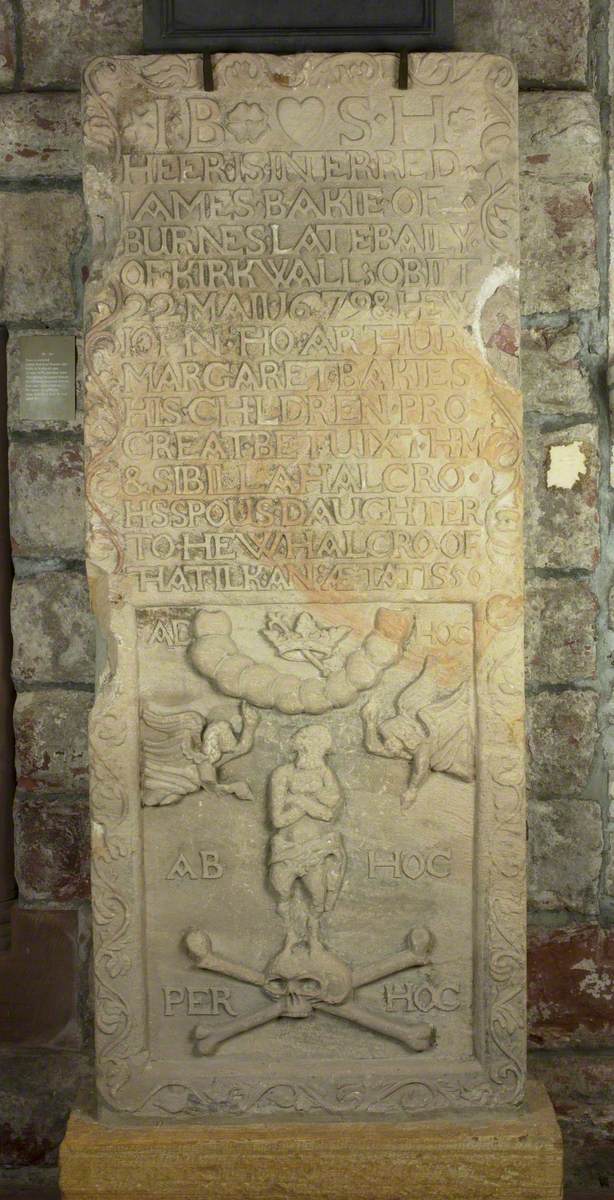 IB S·H
HEER·IS·INTERRED
IAMES·BAKIE·OF
BURNES·LATE·BAILY·
OF·KIRKWALL·OBIIT
22·MAII·1679·&·HEW
IOHN·HO·ARTHUR
MARGARET·BAKIES
HIS·CHILDREN·PRO
CREAT·BETUIXT·HM
&·SIBILLA·HALCRO·
HS·SPOUS·DAUGHTER
TO·HEW·HALCRO·OF
THAT·ILK·AN·ÆTATIS 56
AD HOC
AB HOC
PER HOC